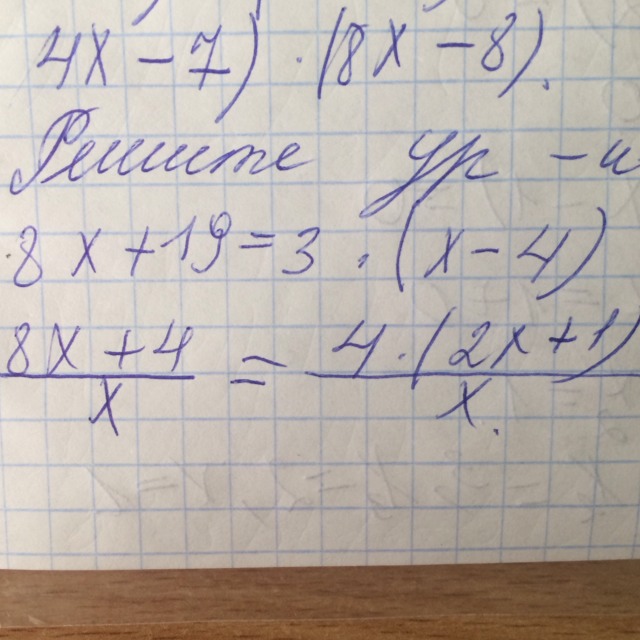 4x - 7) · (8x - 8).
Решите ур -
8x + 19 = 3 · (x - 4)
8x + 4 / x = 4 · (2x + 1) / x.